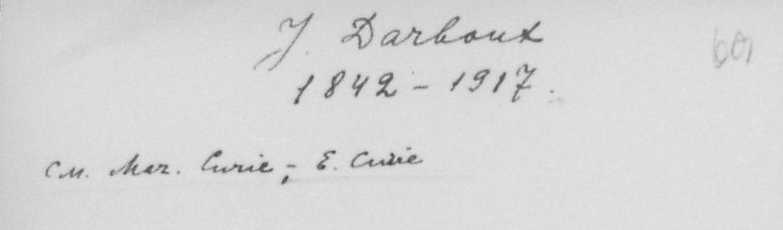 J. Darboux
1842 - 1917.
см. Mar. Curie, - E. Curie